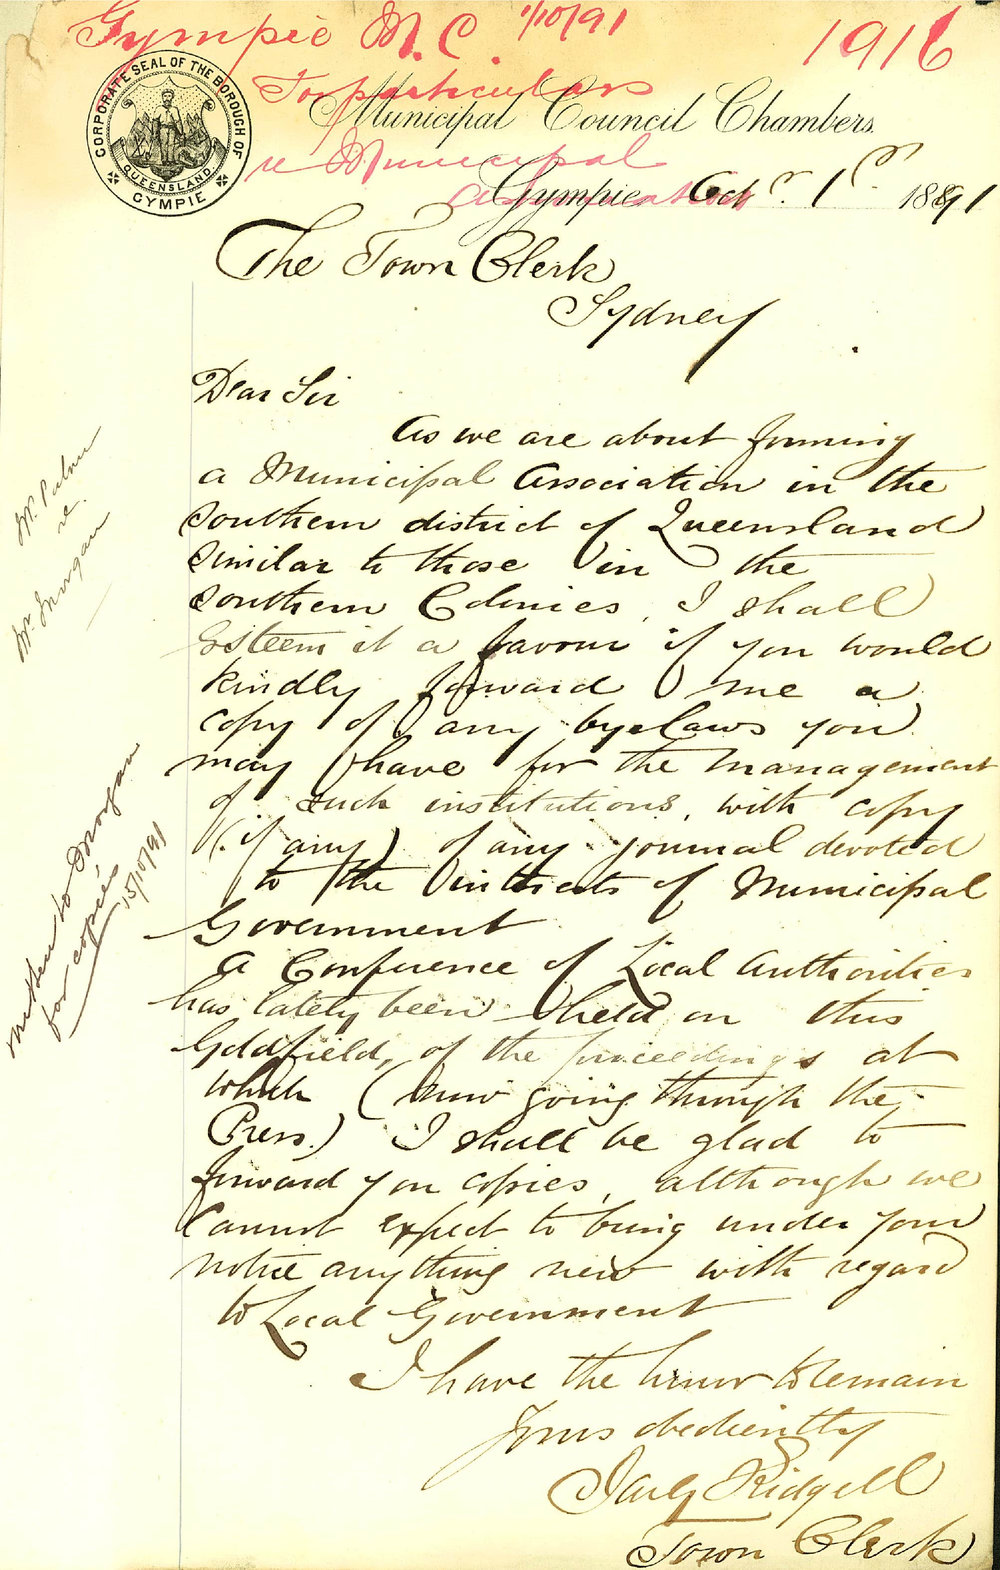 Gympie M. C. 1/10/91
1916
To particulars
re Municipal
Association
CORPORATE SEAL OF THE BOROUGH OF
GYMPIE
QUEENSLAND
Municipal Council Chambers.
Gympie Octr. 1st 1891
The Town Clerk
Sydney
Dear Sir
As we are about forming
a Municipal Association in the
Southern district of Queensland
similar to those in the
Southern Colonies, I shall
Esteem it a favour if you would
kindly forward me a
copy of any bye laws you
may have for the management
of such institutions, with copy
(if any) of any journal devoted
to the interests of Municipal
Government
A Conference of Local Authorities
has lately been held on this
Goldfield, of the proceedings at
which (now going through the
Press.) I shall be glad to
forward you copies, although we
Cannot expect to bring under your
notice anything new with regard
to Local Government
I have the honor to Remain
Yours obediently
Ridgell
Town Clerk
Mr. Palmer
re.
Mr. Morgan
written to Morgan
for copies
15/10/91